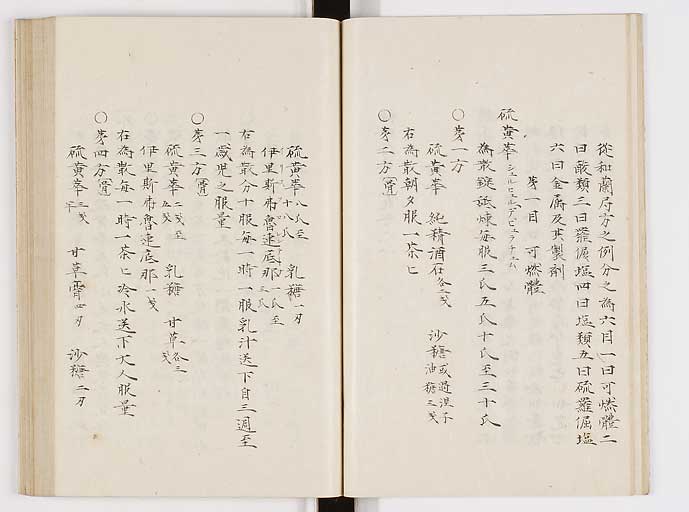 從和蘭局方之例分之為六目一曰可燃體二
曰酸類三曰羅倔塩四曰塩類五曰硫羅倔塩
六曰金属及其製剤
第一目 可燃體
硫黄華
為散錠舐煉毎服三氏五氏十氏至三十氏
○第一方
硫黄華 純精酒石各二戔 沙糖或茴沒子油糖三戔
右為散朝夕服一茶匕
○第二方
硫黄華八氏至十八氏 乳糖一刃
伊里斯弗魯連底那一氏至三氏
右為散分十服毎一時一服乳汁送下自三週至
一歳児之服量
○第三方
硫黄華二戔至五戔 乳糖 甘草各三戔
伊里斯弗魯連底那一戔
右為散毎一時一茶匕冷水送下大人服量
○第四方
硫黄華三戔半 甘草霄四刃 沙糖二刃